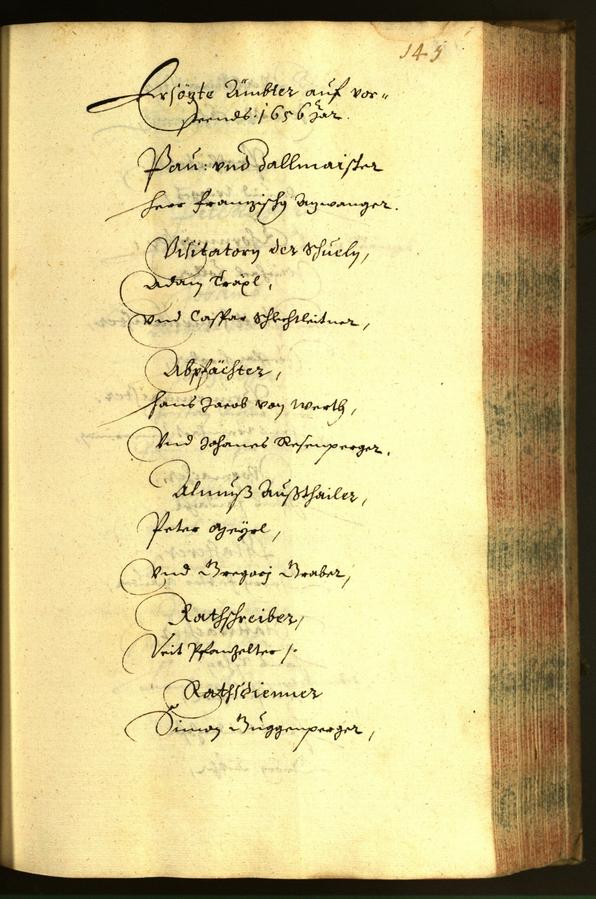 145
Ersözte Ämbter auf vor-
steends: 1656 Jar.
Pau: vnd Zallmaister
Herr Franzischg Aywanger.
Visitatorn der Schueln,
Adam Träxl,
vnd Caspar Schlechtleitner,
Abpfächter,
Hans Jacob von Werth,
Vnd Johanes Resenperger,
Almueß Außthailer,
Peter
Vnd Gregorj Graber,
Rathschreiber,
Veit Pfanzelter /:
Rathsdienner
Simon Guggenperger,